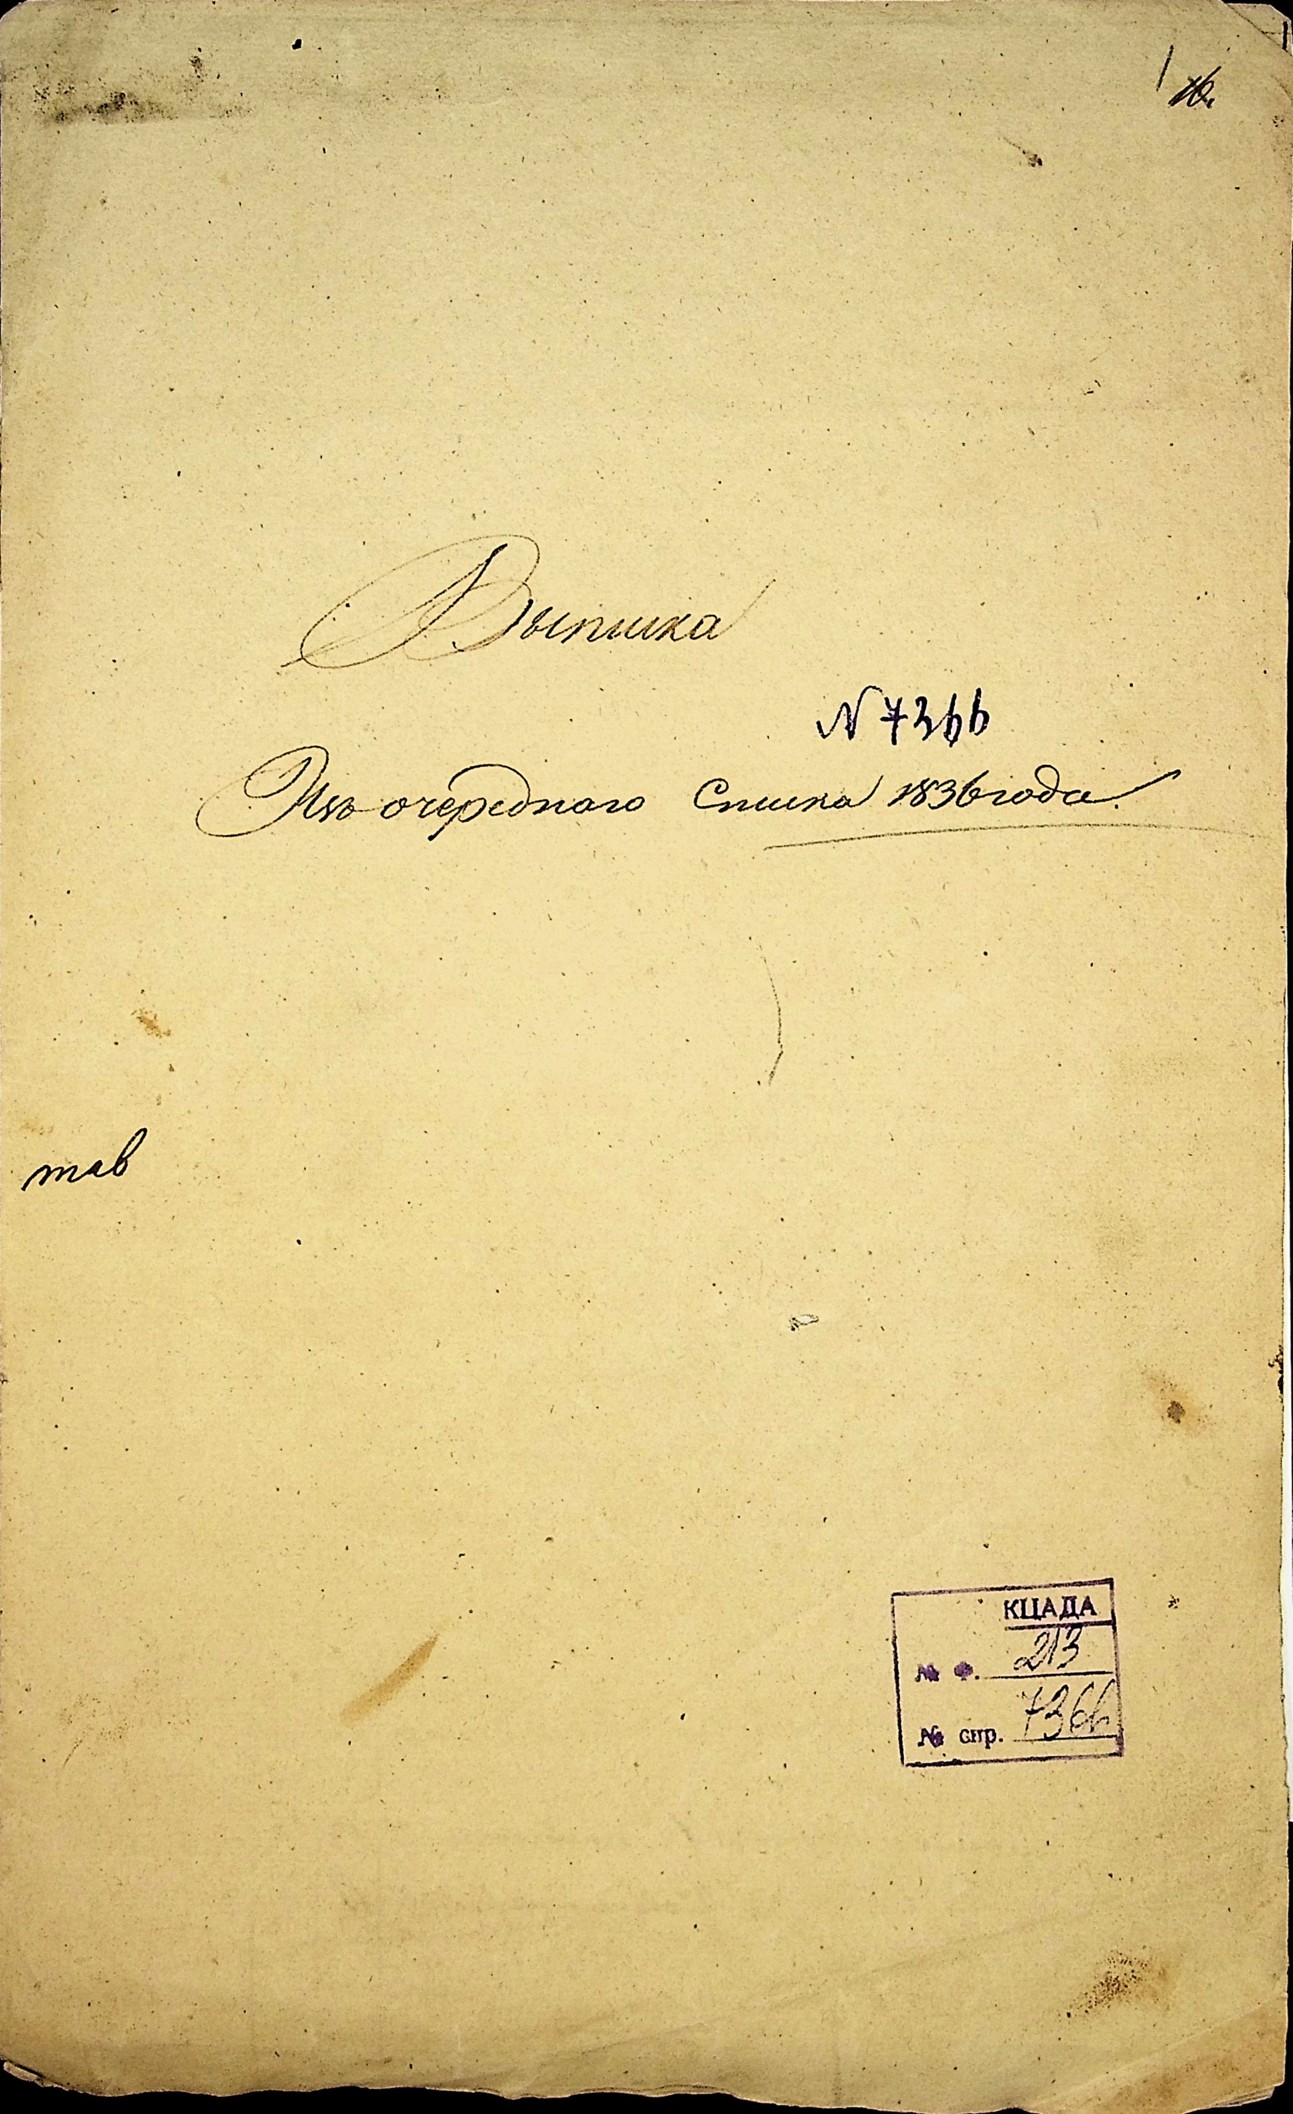 1
Выписка
N 7366
Изъ очереднаго Списка 1836 года.
тав
КЦАДА
№ Ф. 213
№ спр. 7366